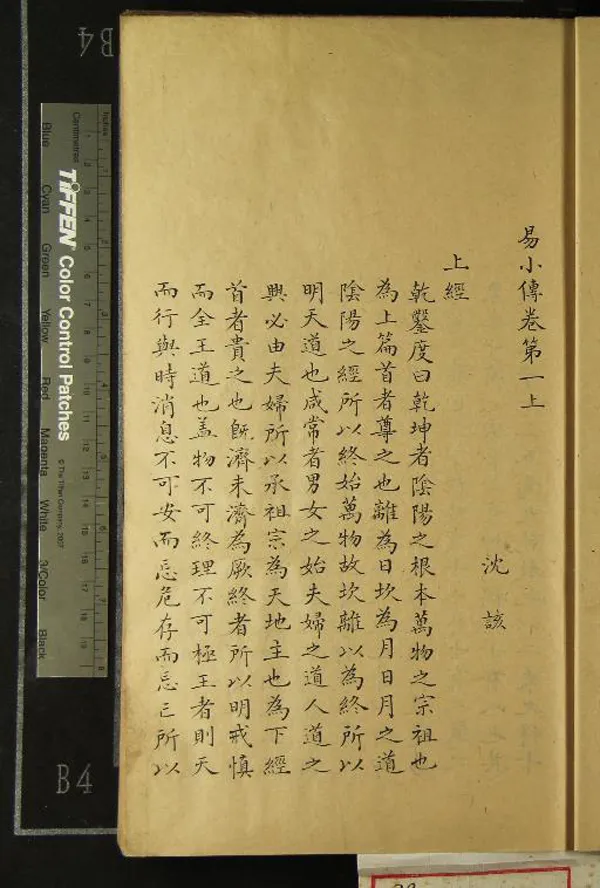 易小傳卷第一上
沈該
上經
乾鑿度曰乾坤者陰陽之根本萬物之宗祖也
為上篇首者尊之也離為日坎為月日月之道
陰陽之經所以終始萬物故坎離以為終所以
明天道也咸常者男女之始夫婦之道人道之
興必由夫婦所以承祖宗為天地主也為下經
首者貴之也旣濟未濟為厥終者所以明戒慎
而全王道也盖物不可終理不可極王者則天
而行與時消息不可安而忘危存而忘亡所以
B4
B4
Inches
Centimetres
TIFFEN Color Control Patches
© The Tiffen Company, 2007
Blue
Cyan
Green
Yellow
Red
Magenta
White
3/Color
Black